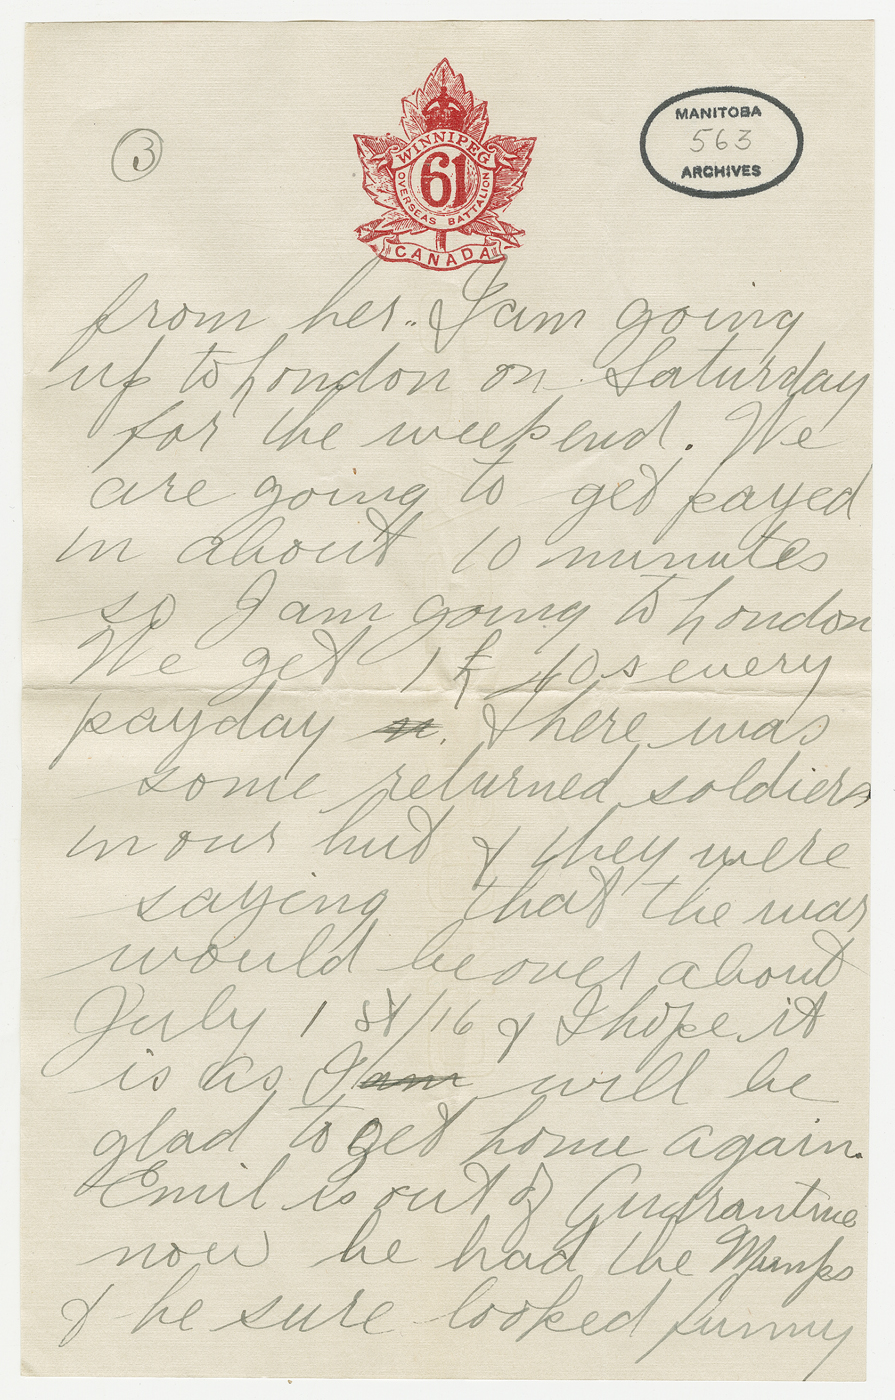 3
WINNIPEG
61
OVERSEAS BATTALION
CANADA
MANITOBA
563
ARCHIVES
from her.. I am going
up to London on Saturday
for the weekend. We
are going to get payed
in about 10 minutes
so I am going to London
We get 1£ 10s every
payday . There was
some returned soldiers
in our hut & they were
saying that the war
would be over about
July 1st/16 & I hope it
is as I am will be
glad to get home again.
Emil is out of Quarantine
now he had the Mumps
& he sure looked funny